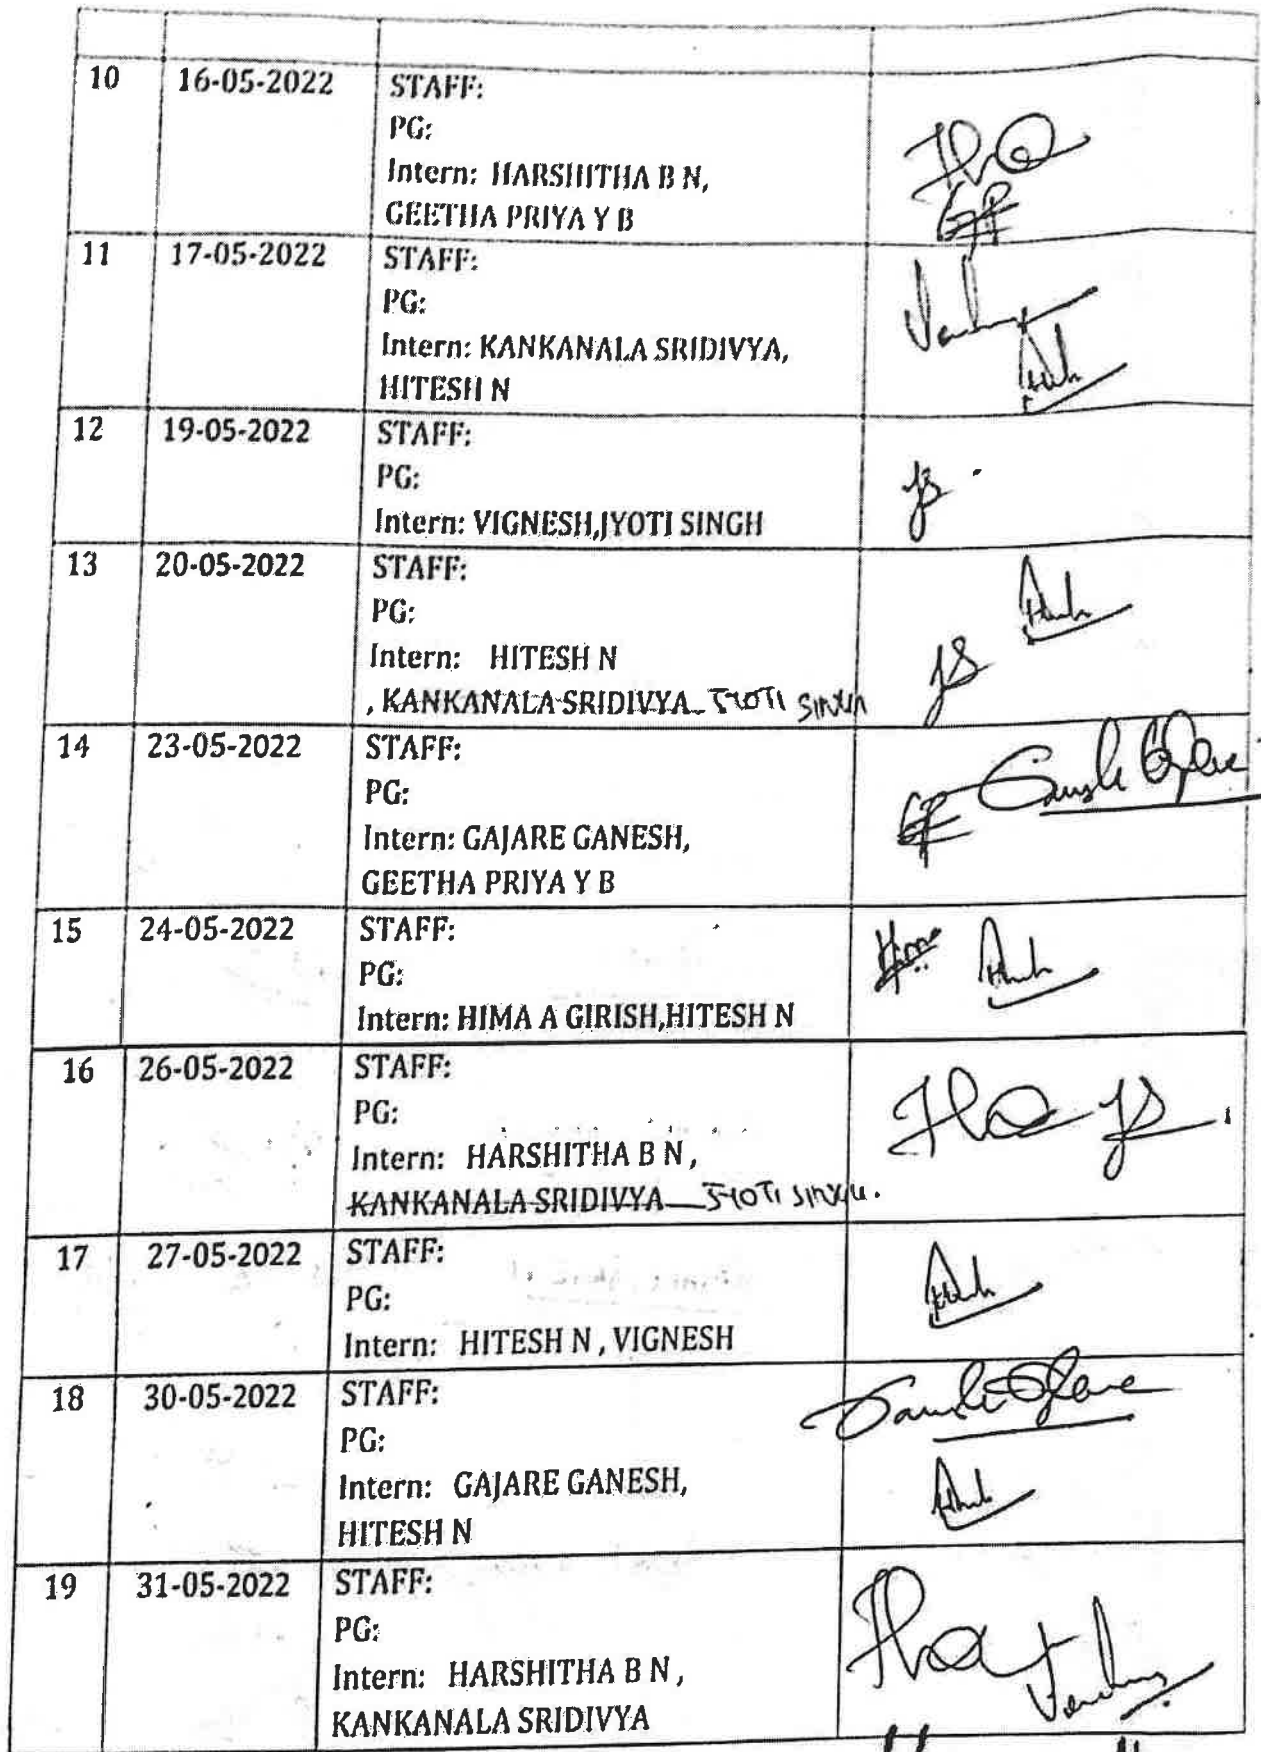 10 16-05-2022 STAFF:
PG:
Intern: HARSHITHA B N,
GEETHA PRIYA Y B
11 17-05-2022 STAFF:
PG:
Intern: KANKANALA SRIDIVYA,
HITESH N
12 19-05-2022 STAFF:
PG:
Intern: VIGNESH,JYOTI SINGH
JS
13 20-05-2022 STAFF:
PG:
Intern: HITESH N
, KANKANALA SRIDIVYA JYOTI SINGH
JS
14 23-05-2022 STAFF:
PG:
Intern: GAJARE GANESH,
GEETHA PRIYA Y B
15 24-05-2022 STAFF:
PG:
Intern: HIMA A GIRISH,HITESH N
16 26-05-2022 STAFF:
PG:
Intern: HARSHITHA B N ,
KANKANALA SRIDIVYA JYOTI SINGH.
JS
17 27-05-2022 STAFF:
PG:
Intern: HITESH N , VIGNESH
18 30-05-2022 STAFF:
PG:
Intern: GAJARE GANESH,
HITESH N
19 31-05-2022 STAFF:
PG:
Intern: HARSHITHA B N ,
KANKANALA SRIDIVYA